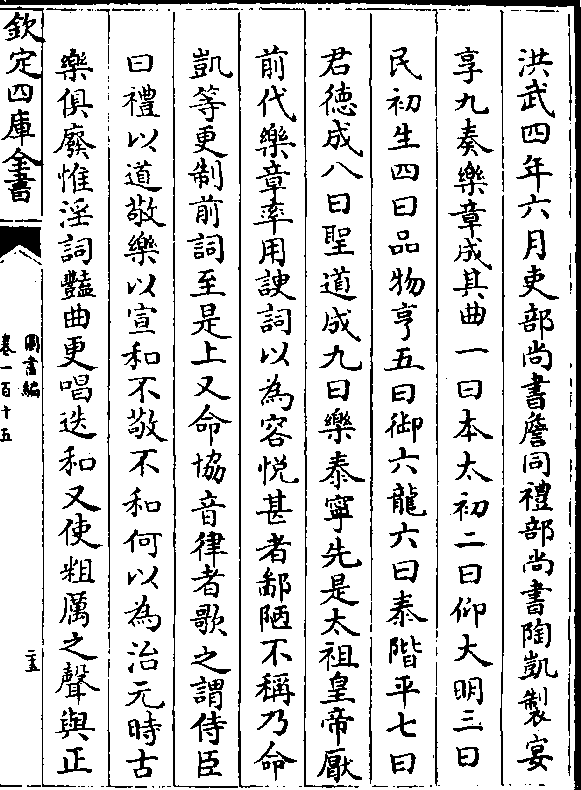 洪武四年六月吏部尚書詹同禮部尚書陶凱製宴
享九奏樂章成其曲一曰本太初二曰仰大明三曰
民初生四曰品物亨五曰御六龍六曰泰階平七曰
君德成八曰聖道成九曰樂泰寧先是太祖皇帝厭
前代樂章率用諛詞以為容悦甚者鄙陋不稱乃命
凱等更制前詞至是上又命協音律者歌之謂侍臣
曰禮以道敬樂以宣和不敬不和何以為治元時古
樂俱廢惟淫詞豔曲更唱迭和又使粗厲之聲與正
欽定四庫全書
圖書編
卷一百十五
二五